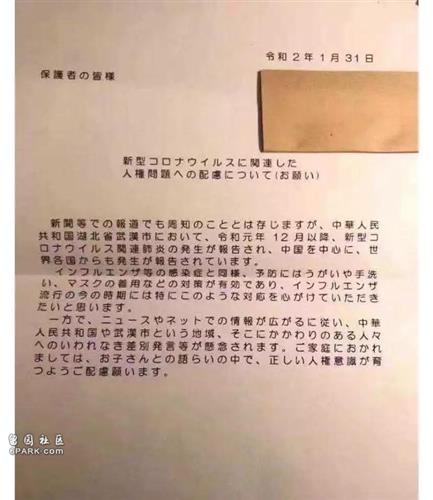 令和２年１月３１日
保護者の皆様
新型コロナウイルスに関連した
人権問題への配慮について(お願い)
新聞等での報道でも周知のこととは存じますが、中華人民
共和国湖北省武漢市において、令和元年１２月以降、新型コ
ロナウイルス関連肺炎の発生が報告され、中国を中心に、世
界各国からも発生が報告されています。
インフルエンザ等の感染症と同様、予防にはうがいや手洗
い、マスクの着用などの対策が有効であり、インフルエンザ
流行の今の時期には特にこのような対応を心がけていただき
たいと思います。
一方で、ニュースやネットでの情報が広がるに従い、中華
人民共和国や武漢市という地域、そこにかかわりのある人々
へのいわれなき差別発言等が懸念されます。ご家庭におかれ
ましては、お子さんとの語らいの中で、正しい人権意識が育
つようご配慮願います。
留园社区
6PARK.COM